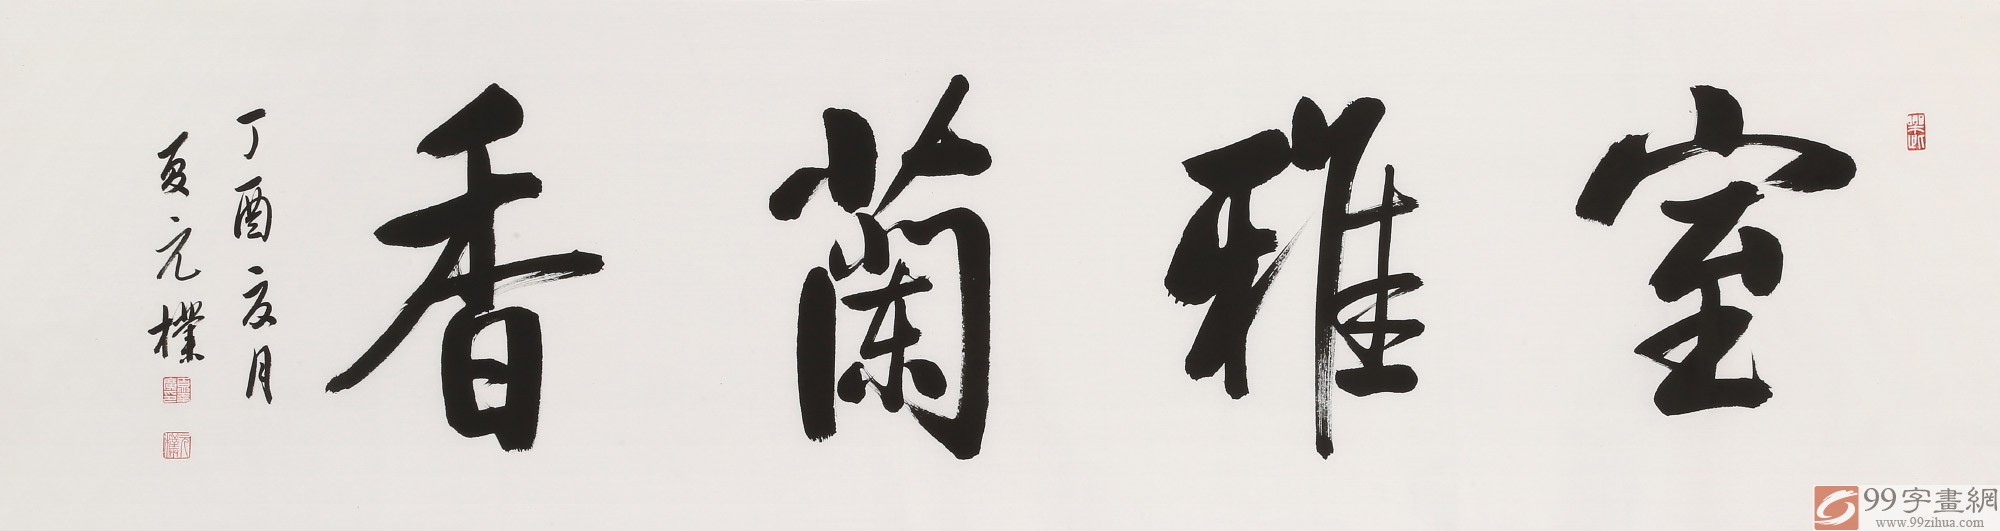 室雅蘭香
丁酉夏月
夏元樸
99字畫網
www.99zihua.com